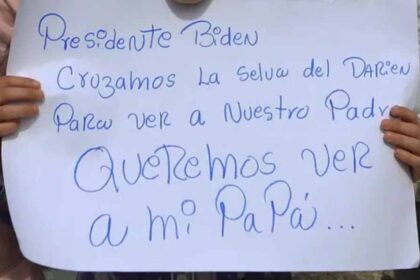 Presidente Biden
Cruzamos La Selva del DARIEN
Para ver a Nuestro Padre
QUEREMOS VER
a mi PaPá...